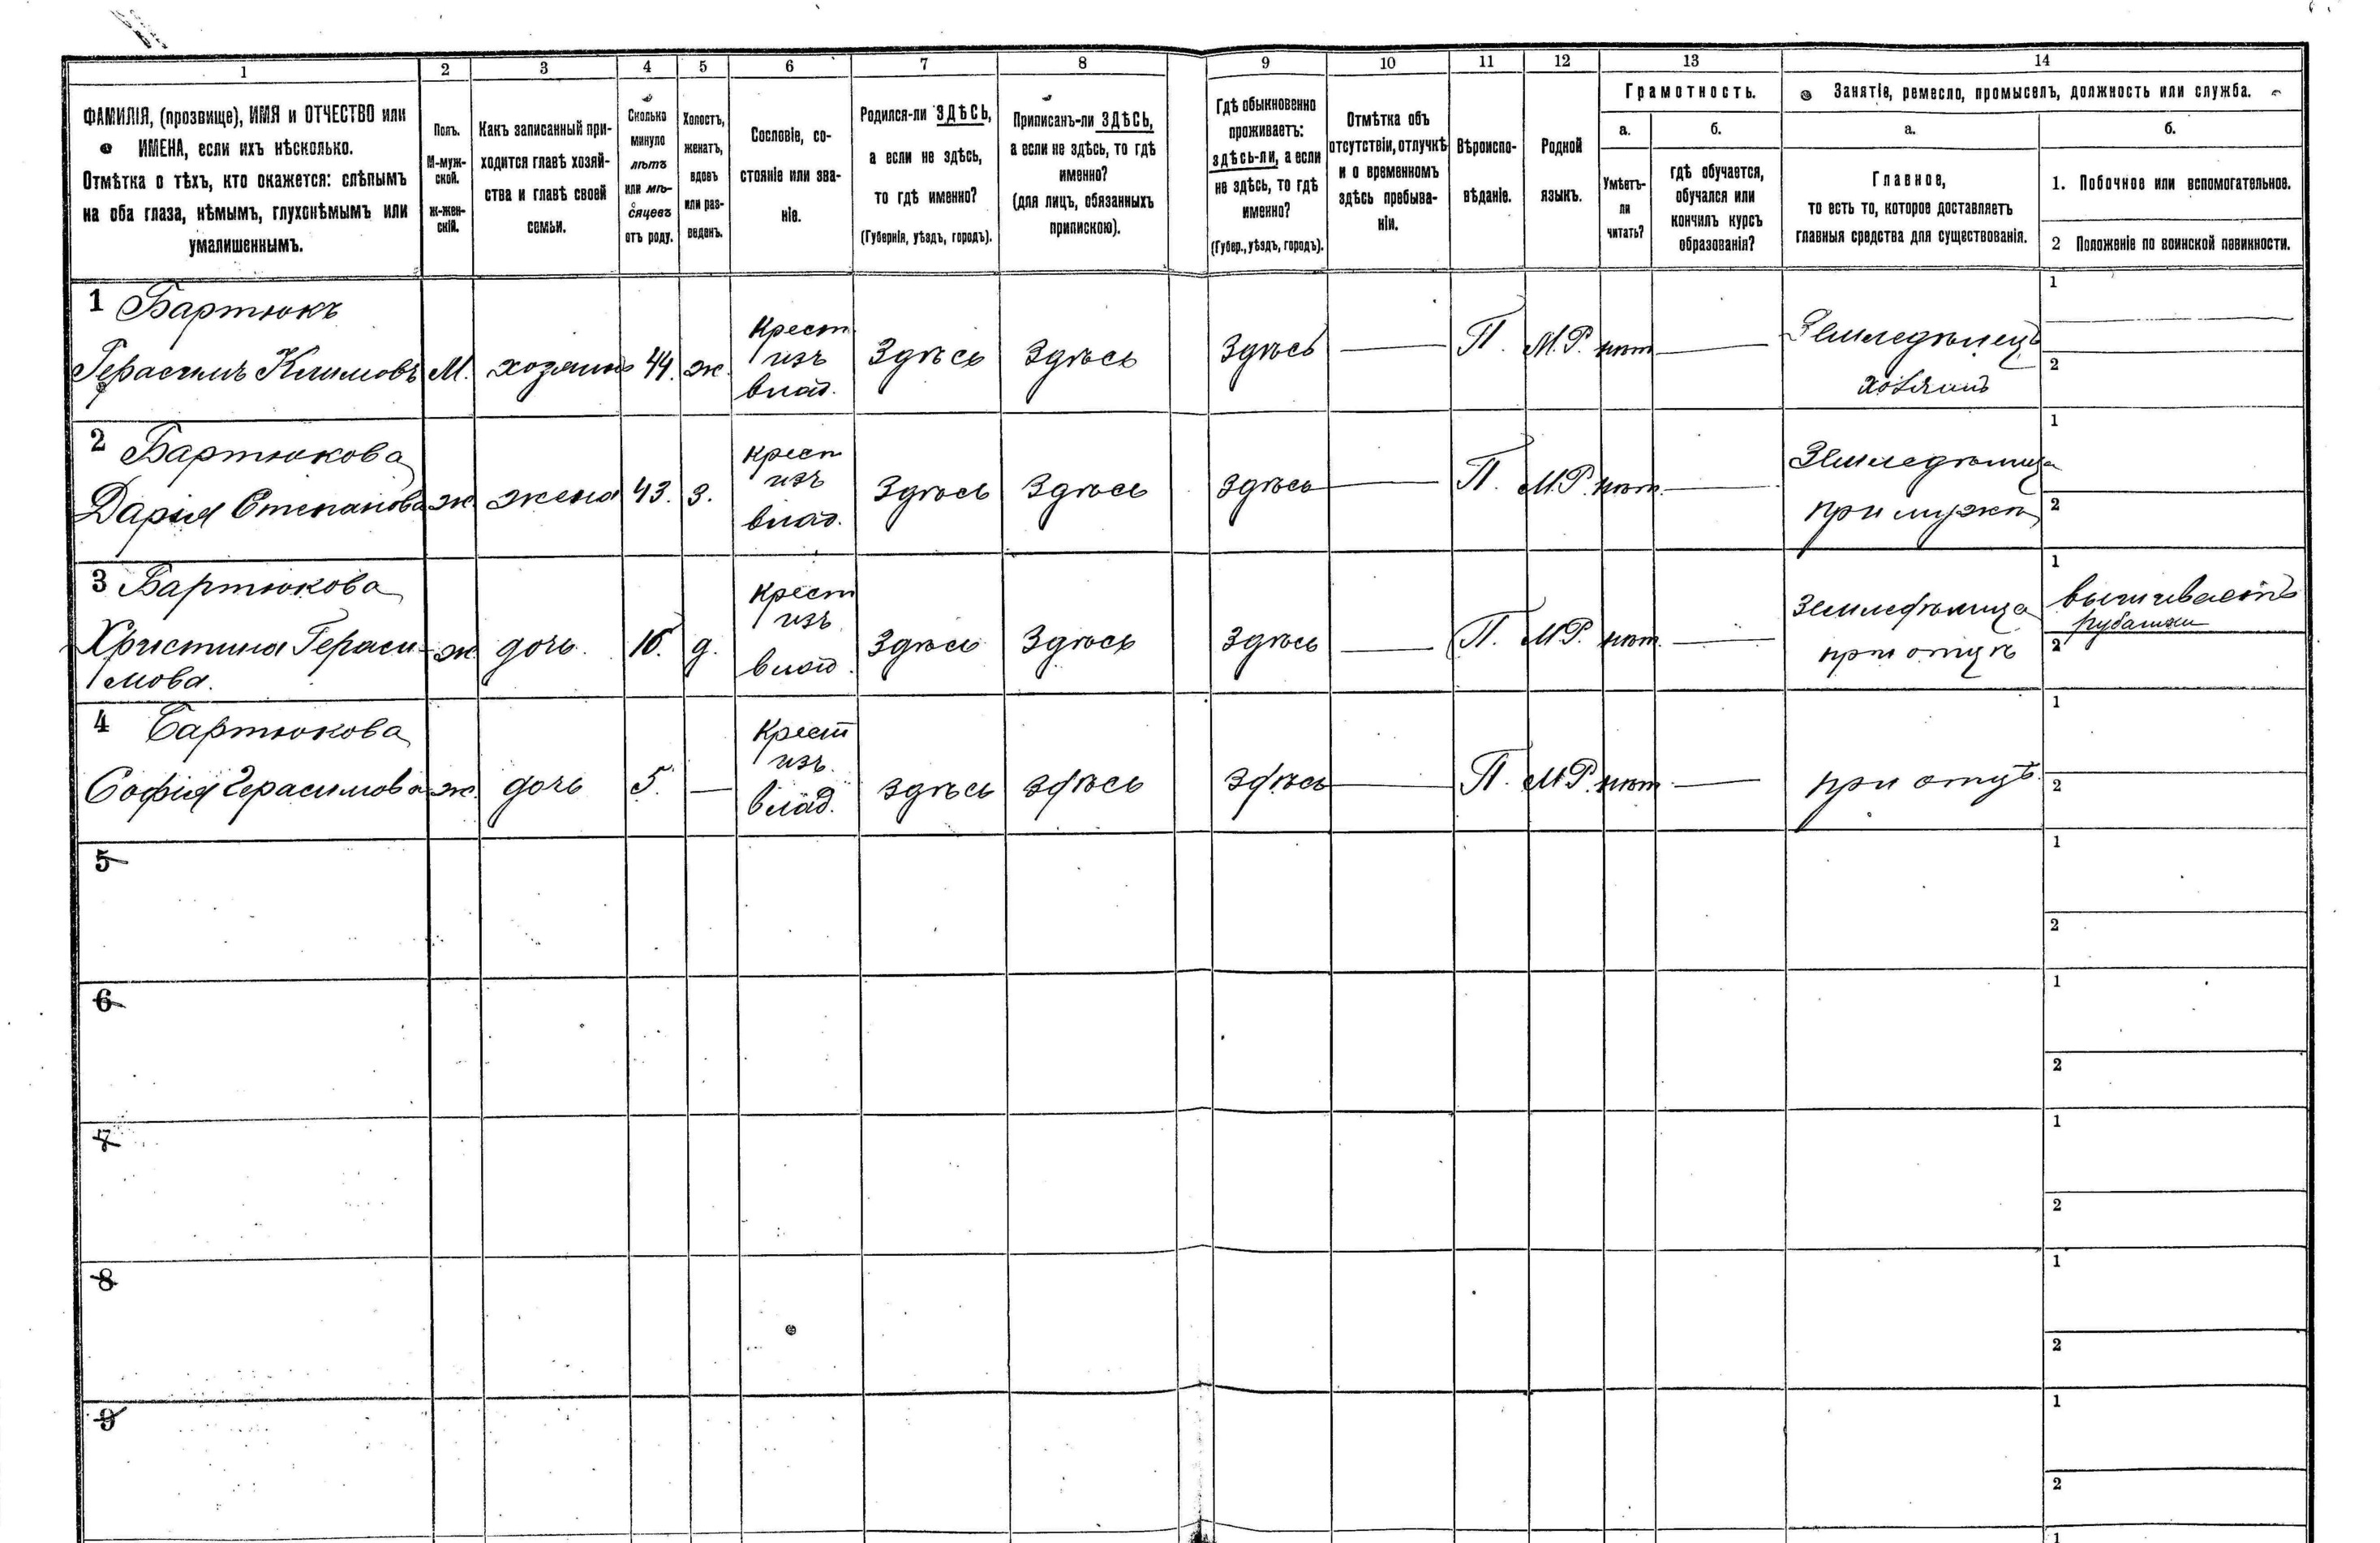 1 2 3 4 5 6 7 8 9 10 11 12 13 14
ФАМИЛІЯ, (прозвище), ИМЯ и ОТЧЕСТВО или
ИМЕНА, если ихъ нѣсколько.
Отмѣтка о тѣхъ, кто окажется: слѣпымъ
на оба глаза, нѣмымъ, глухонѣмымъ или
умалишеннымъ.
Полъ.
М-муж-
ской.
Ж-жен-
скій.
Какъ записанный при-
ходится главѣ хозяй-
ства и главѣ своей
семьи.
Сколько
минуло
лѣтъ
или мѣ-
сяцевъ
отъ роду.
Холостъ,
женатъ,
вдовъ
или раз-
веденъ.
Сословіе, со-
стояніе или зва-
ніе.
Родился-ли ЗДѢСЬ,
а если не здѣсь,
то гдѣ именно?
(Губернія, уѣздъ, городъ).
Приписанъ-ли ЗДѢСЬ,
а если не здѣсь, то гдѣ
именно?
(для лицъ, обязанныхъ
припискою).
Гдѣ обыкновенно
проживаетъ:
здѣсь-ли, а если
не здѣсь, то гдѣ
именно?
(Губер., уѣздъ, городъ).
Отмѣтка объ
отсутствіи, отлучкѣ
и о временномъ
здѣсь пребыва-
ніи.
Вѣроиспо-
вѣданіе.
Родной
языкъ.
Грамотность.
а.
Умѣетъ-
ли
читать?
б.
гдѣ обучается,
обучался или
кончилъ курсъ
образованія?
Занятіе, ремесло, промыселъ, должность или служба.
а.
Главное,
то есть то, которое доставляетъ
главныя средства для существованія.
б.
1. Побочное или вспомогательное.
2 Положеніе по воинской повинности.
1 Бартюкъ
Герасимъ Климовъ
М.
хозяинъ
44.
ж.
Крест
изъ
влад.
Здѣсь
Здѣсь
Здѣсь
П.
М.Р.
нѣт
Земледѣлецъ
хозяинъ
1
2
2 Бартюкова
Дарья Степанова
ж.
жена
43.
З.
Крест
изъ
влад.
Здѣсь
Здѣсь
Здѣсь
П.
М.Р.
нѣт.
Земледѣлица
при мужѣ
1
2
3 Бартюкова
Христина Гераси-
мова.
ж
дочь.
16.
д.
Крест
изъ
влад.
Здѣсь
Здѣсь
Здѣсь
П.
М.Р.
нѣт.
Земледѣлица
при отцѣ
1
вышиваетъ
рубашки
2
4 Бартюкова
Софія Герасимова
ж.
дочь
5.
Крест
изъ
влад.
здѣсь
здѣсь
здѣсь
П.
М.Р.
нѣт
при отцѣ.
1
2
5
1
2
6
1
2
7
1
2
8
1
2
9
1
2
1